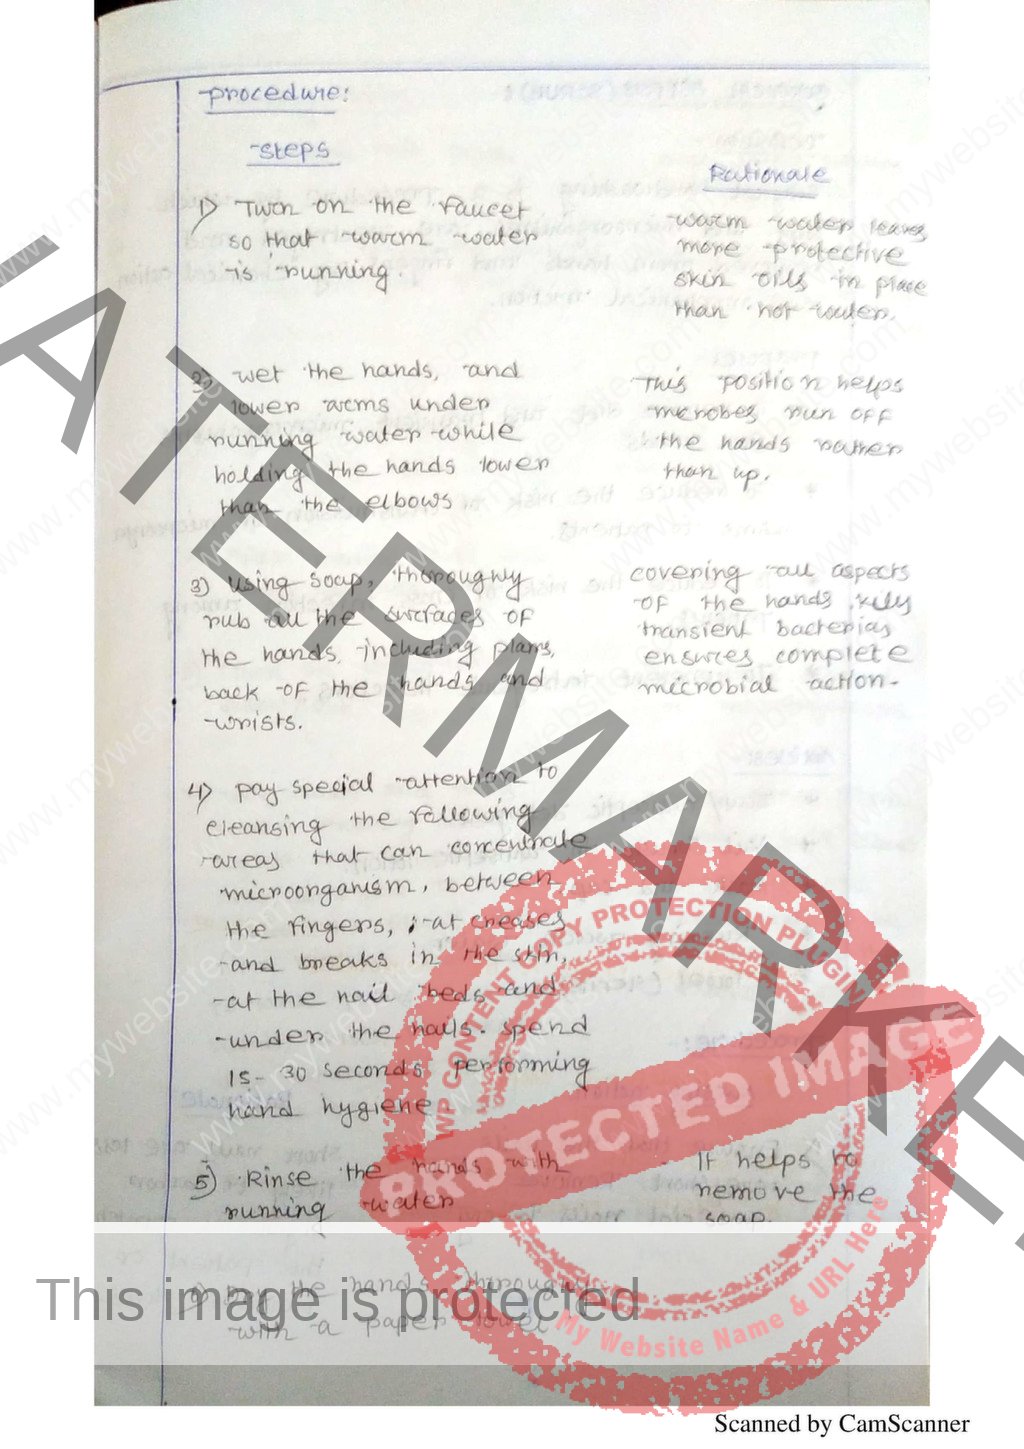 procedure:
steps
Rationale
1) Turn on the faucet
so that warm water
is running.
warm water leaves
more protective
skin oils in place
than hot water.
2) wet the hands, and
lower arms under
running water while
holding the hands lower
than the elbows
This position helps
microbes run off
the hands rather
than up.
3) using soap, thoroughly
rub all the surfaces of
the hands, including plams,
back of the hands and
wrists.
covering all aspects
of the hands
transient bacterias
ensures complete
microbial action.
4) pay special attention to
cleansing the following
areas that can concentrate
microorganism, between
the fingers, at creases
and breaks in the skin,
at the nail beds and
under the nails. spend
15-30 seconds performing
hand hygiene
5) Rinse the hands with
running water
It helps to
remove the
soap.
the hands
with a paper towel
WATERMARKED
WP CONTENT COPY PROTECTION PLUGIN
PROTECTED IMAGE
My Website Name & URL Here
This image is protected
Scanned by CamScanner